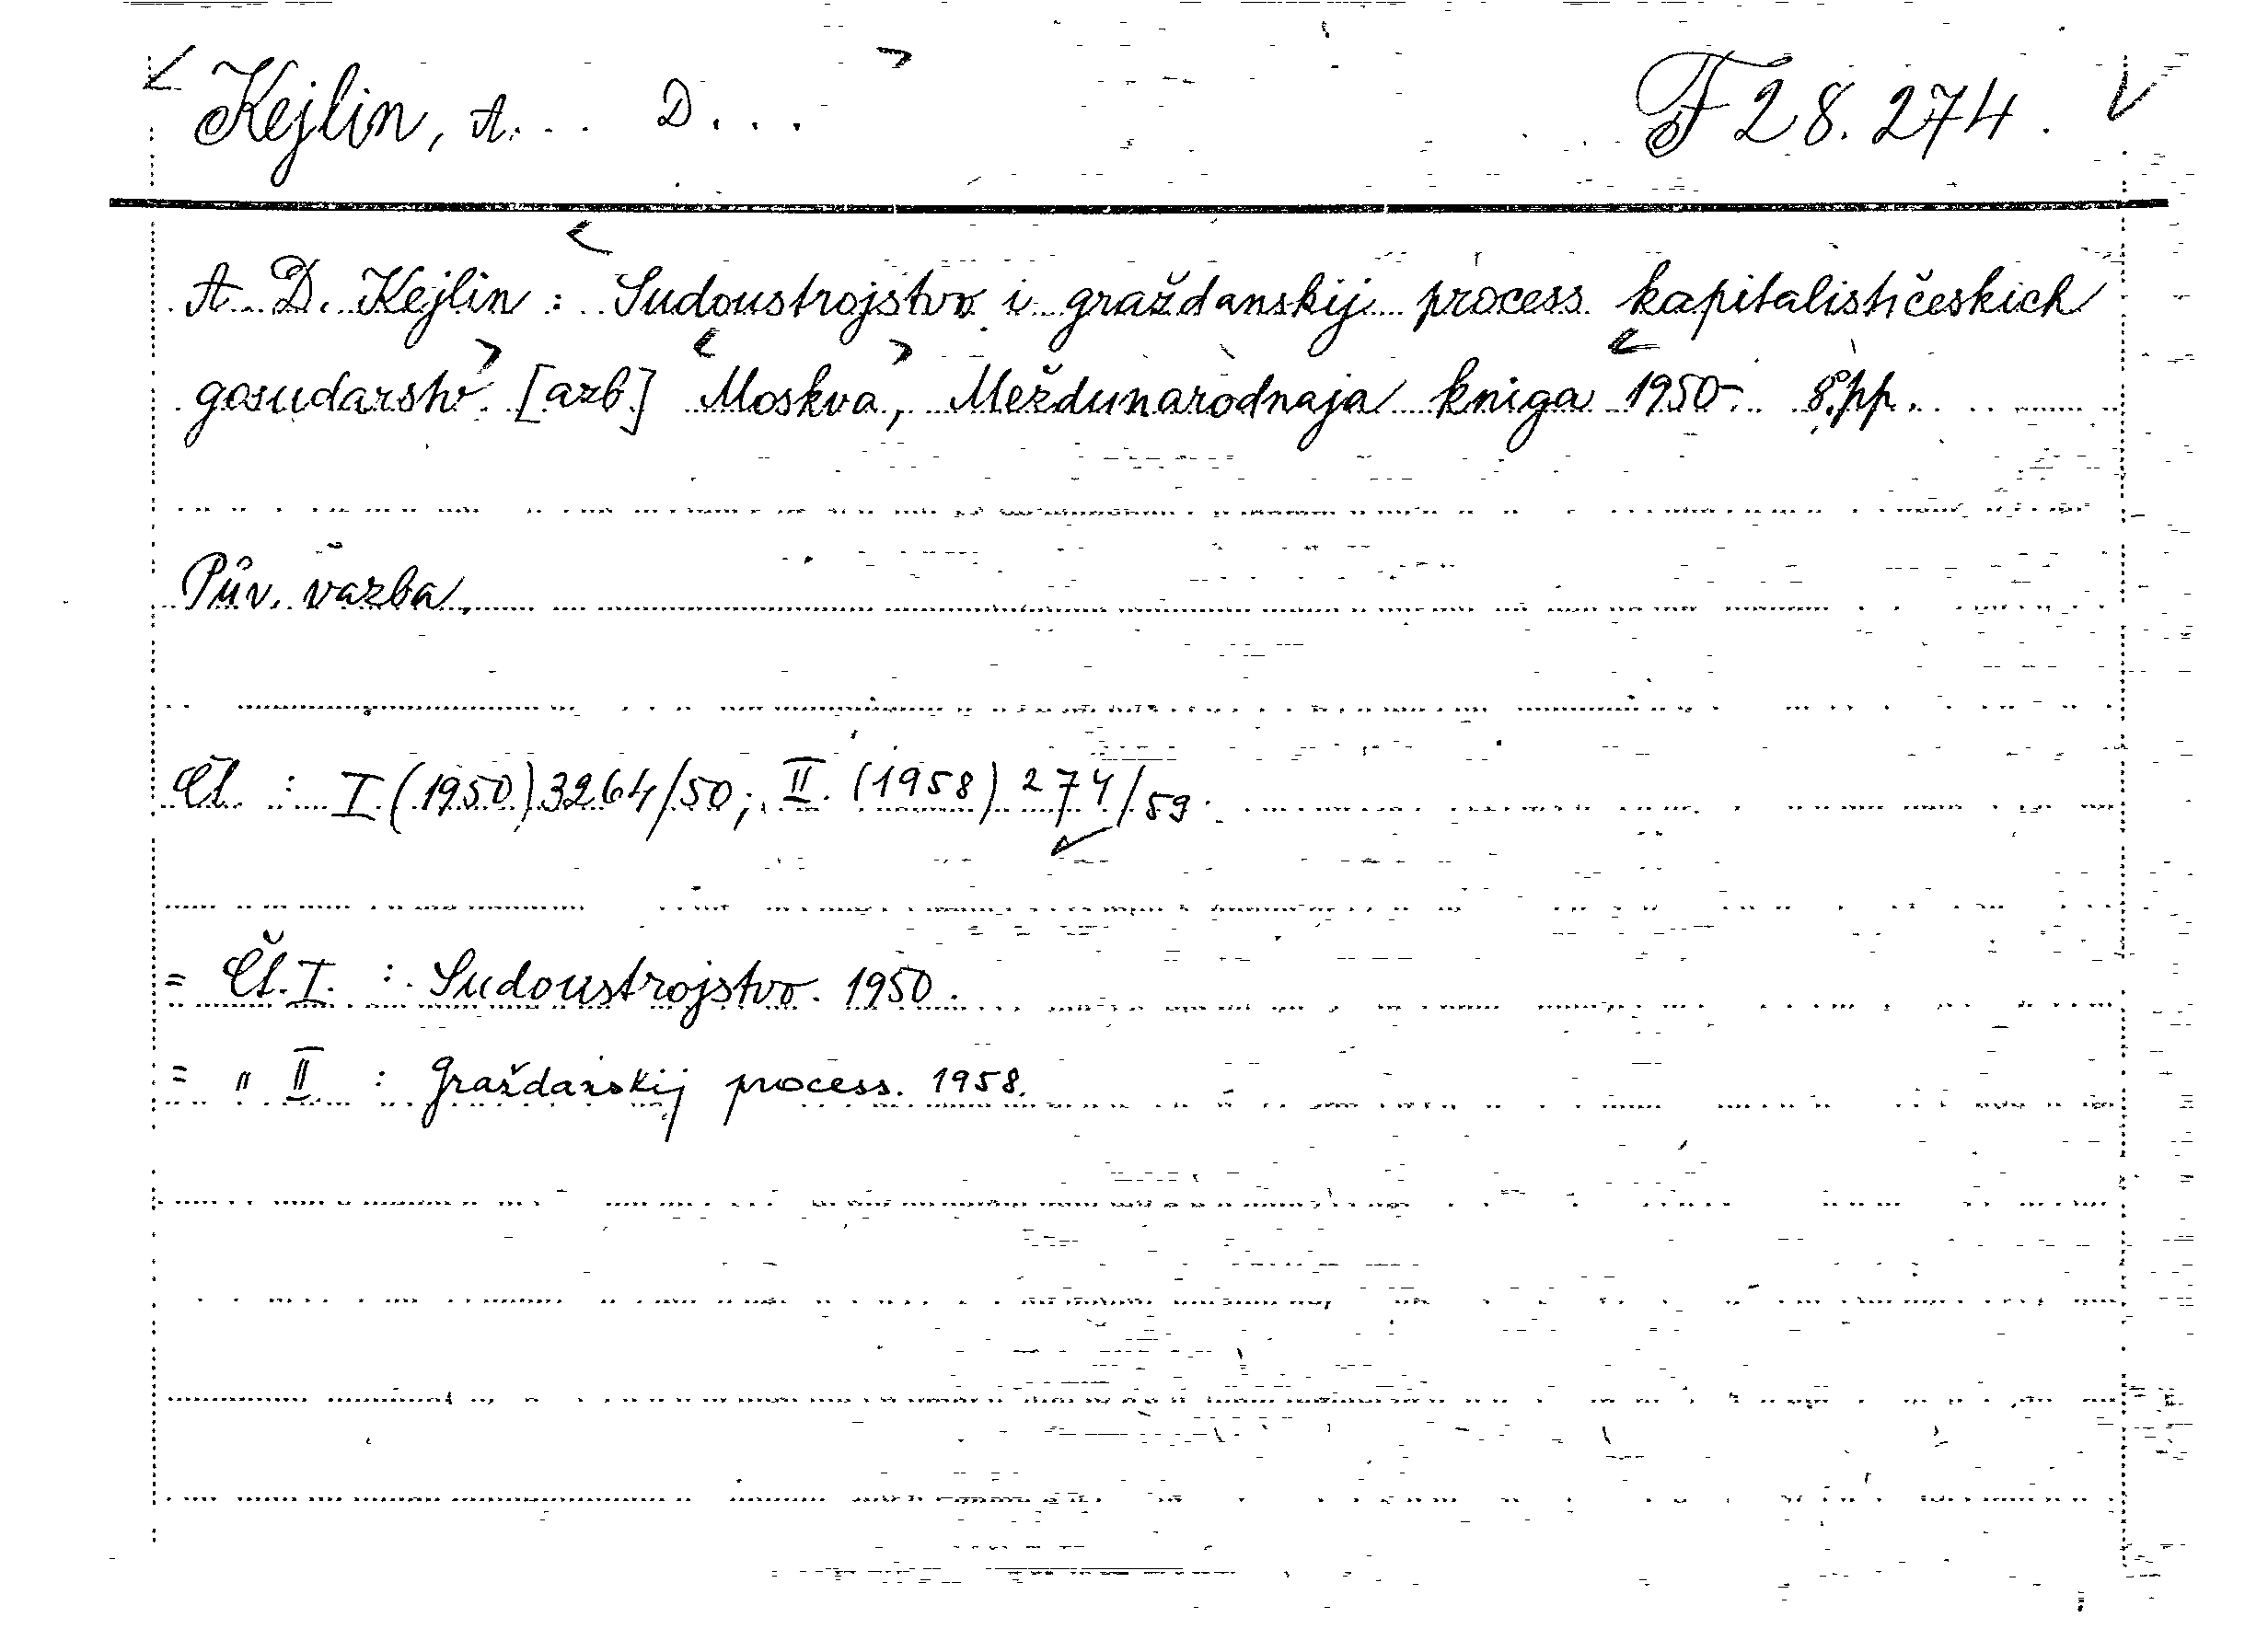 Kejlin, A... D... F 28.274.
A. D. Kejlin: Sudoustrojstvo i graždanskij process kapitalističeskich
gosudarstv. [azb.] Moskva, Meždunarodnaja kniga 1950- 8° pp.
Pův. vazba.
Čl : I (1950) 3264/50; II. (1958) 274/59.
= Čl. I. : Sudoustrojstvo. 1950.
= " II : Graždanskij process. 1958.